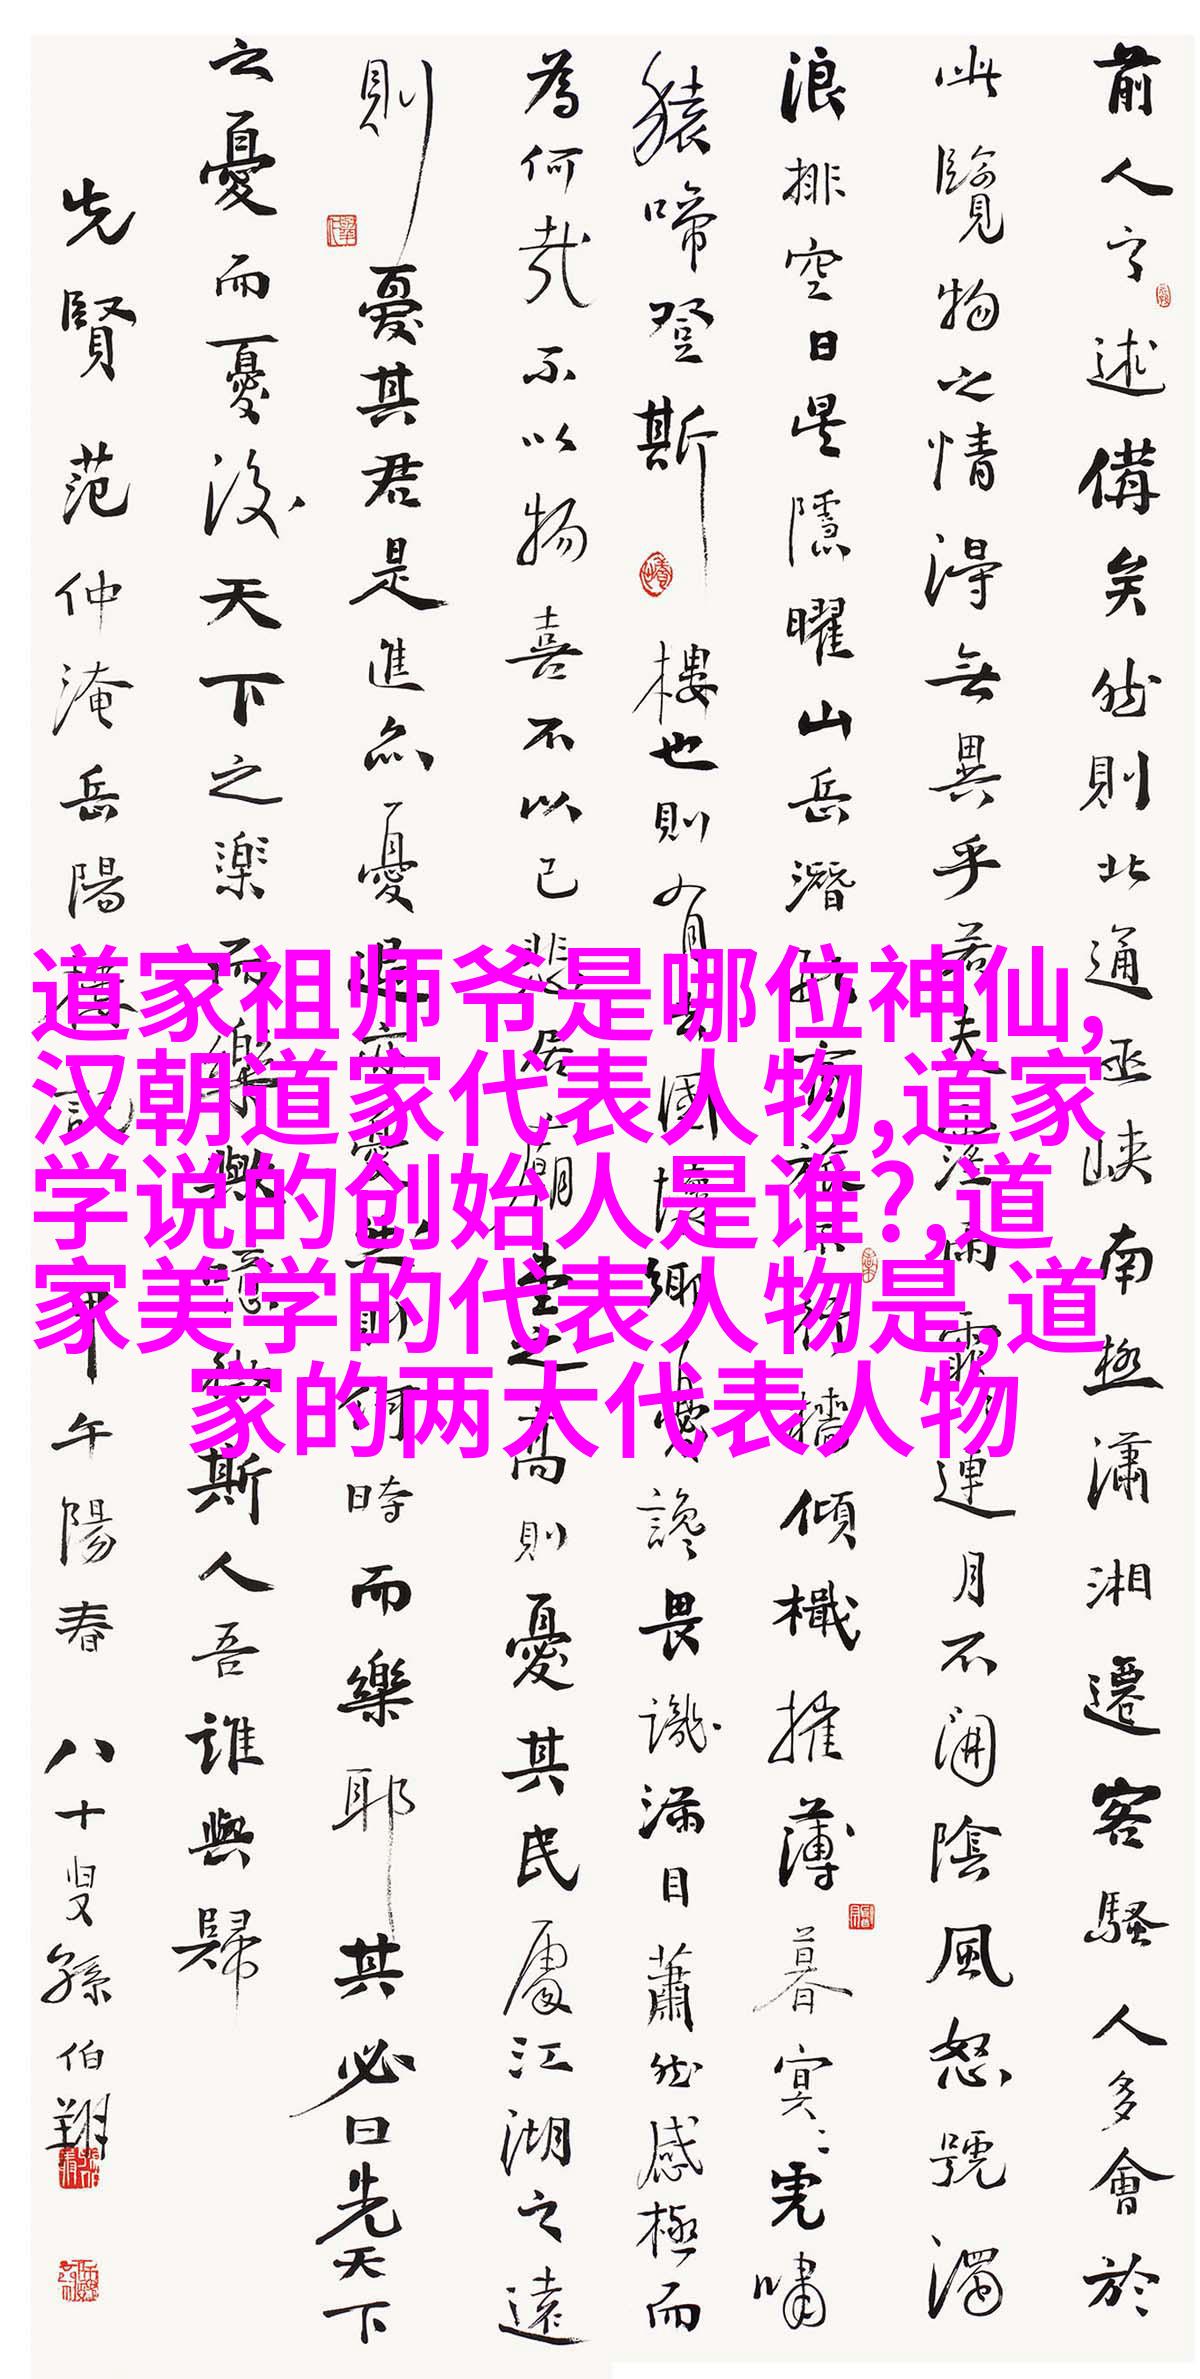 前人之述備矣然則北通巫峽南極瀟湘遷客騷人多會於
此覽物之情得無異乎若夫淫雨霏〻連月不開陰風怒號濁
浪排空日星隱曜山岳潛形商旅不行檣傾檝摧薄暮冥〻虎嘯
猿啼登斯樓也則有去國懷鄉憂讒畏譏滿目蕭然感極而
為何哉不以物喜不以己悲居廟堂之高則憂其民處江湖之遠
則憂其君是進亦憂退亦憂然則何時而樂耶其必曰先天下
之憂而憂後天下之樂而樂與噫微斯人吾誰與歸
先賢范仲淹岳陽樓記甲午陽春 八十叟孫伯翔
道家祖师爷是哪位神仙,
汉朝道家代表人物,道家
学说的创始人是谁?,道
家美学的代表人物是,道
家的两大代表人物